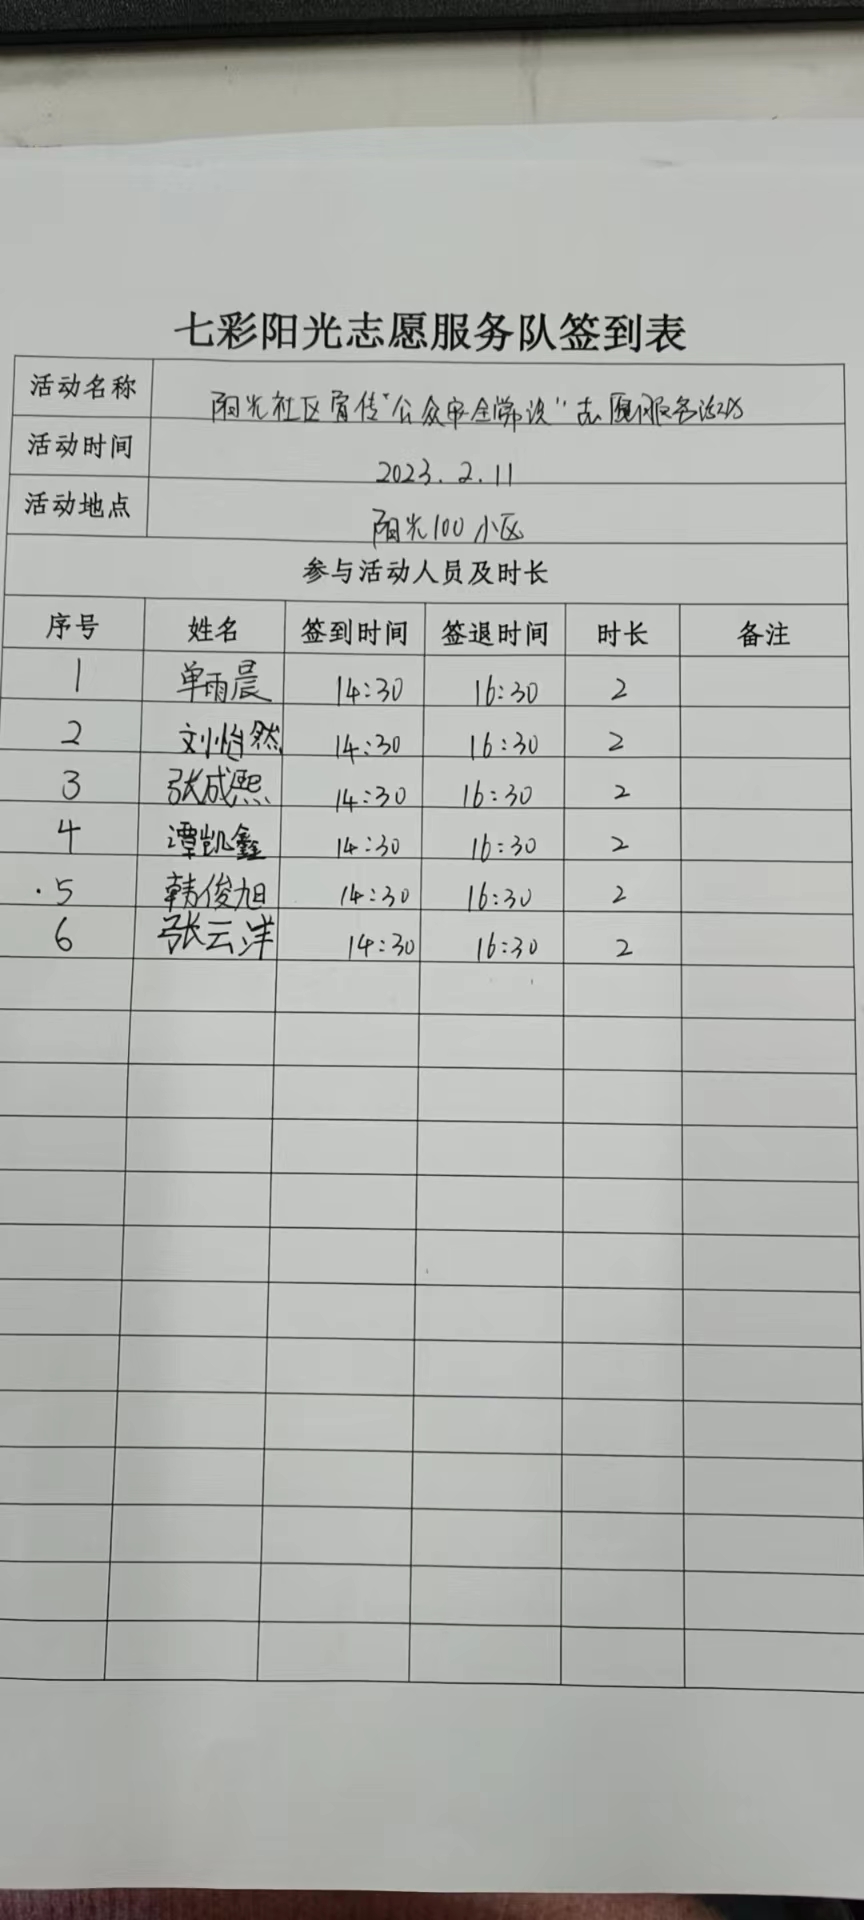 七彩阳光志愿服务队签到表
活动名称 阳光社区宣传"公众安全常识"志愿服务活动
活动时间 2023.2.11
活动地点 阳光100小区
参与活动人员及时长
序号 姓名 签到时间 签退时间 时长 备注
1 单雨晨 14:30 16:30 2
2 刘怡然 14:30 16:30 2
3 张成熙 14:30 16:30 2
4 谭凯鑫 14:30 16:30 2
5 韩俊旭 14:30 16:30 2
6 张云洋 14:30 16:30 2